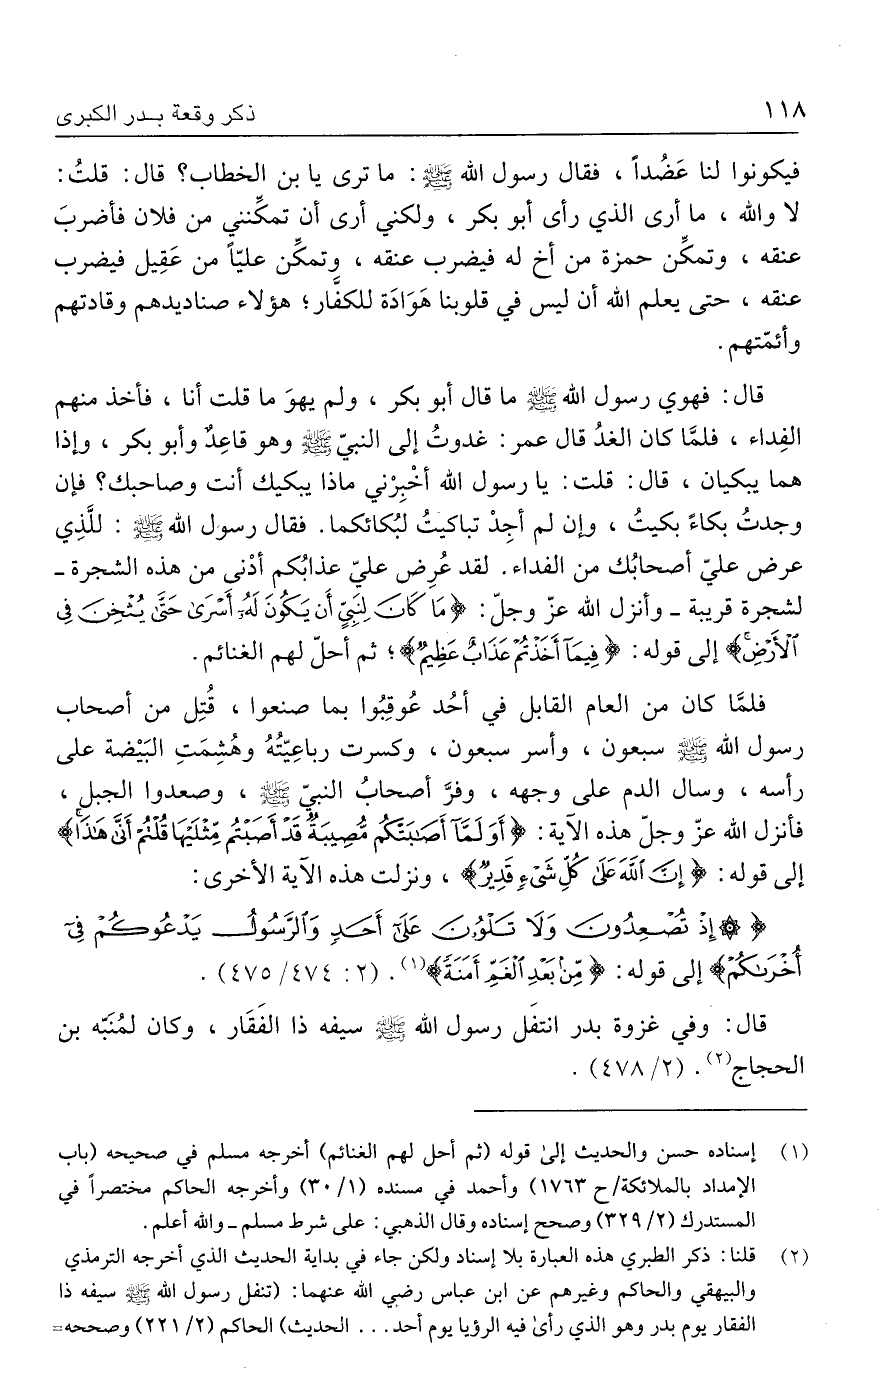 ١١٨
ذكر وقعة بدر الكبرى
فيكونوا لنا عَضُداً ، فقال رسول الله ﷺ : ما ترى يا بن الخطاب؟ قال: قلتُ:
لا والله ، ما أرى الذي رأى أبو بكر ، ولكني أرى أن تمكِّنني من فلان فأضربَ
عنقه ، وتمكِّن حمزة من أخ له فيضرب عنقه ، وتمكِّن عليّاً من عَقِيل فيضرب
عنقه ، حتى يعلم الله أن ليس في قلوبنا هَوَادَة للكفَّار؛ هؤلاء صناديدهم وقادتهم
وأئمّتهم.
قال: فهوي رسول الله ﷺ ما قال أبو بكر ، ولم يهوَ ما قلت أنا ، فأخذ منهم
الفِداء ، فلمَّا كان الغدُ قال عمر: غدوتُ إلى النبيّ ﷺ وهو قاعِدٌ وأبو بكر ، وإذا
هما يبكيان ، قال: قلت: يا رسول الله أخْبِرْني ماذا يبكيك أنت وصاحبك؟ فإن
وجدتُ بكاءً بكيتُ ، وإن لم أجِدْ تباكيتُ لبُكائكما. فقال رسول الله ﷺ : للَّذِي
عرض عليّ أصحابُك من الفداء. لقد عُرِض عليّ عذابُكم أدْنى من هذه الشجرة ـ
لشجرة قريبة ـ وأنزل الله عزّ وجلّ: ﴿مَا كَانَ لِنَبِيٍّ أَن يَكُونَ لَهُۥٓ أَسْرَىٰ حَتَّىٰ يُثْخِنَ فِي
ٱلْأَرْضِۚ﴾ إلى قوله: ﴿فِيمَآ أَخَذْتُمْ عَذَابٌ عَظِيمٌ﴾؛ ثم أحلّ لهم الغنائم.
فلمَّا كان من العام القابل في أحُد عُوقِبُوا بما صنعوا ، قُتِل من أصحاب
رسول الله ﷺ سبعون ، وأسر سبعون ، وكسرت رباعِيّتُهُ وهُشِمَتِ البَيْضة على
رأسه ، وسال الدم على وجهه ، وفرَّ أصحابُ النبيّ ﷺ ، وصعدوا الجبل ،
فأنزل الله عزّ وجلّ هذه الآية: ﴿أَوَلَمَّآ أَصَٰبَتْكُم مُّصِيبَةٌ قَدْ أَصَبْتُم مِّثْلَيْهَا قُلْتُمْ أَنَّىٰ هَٰذَاۖ﴾
إلى قوله: ﴿إِنَّ ٱللَّهَ عَلَىٰ كُلِّ شَيْءٍ قَدِيرٌ﴾ ، ونزلت هذه الآية الأخرى:
﴿۞ إِذْ تُصْعِدُونَ وَلَا تَلْوُۥنَ عَلَىٰٓ أَحَدٍ وَٱلرَّسُولُ يَدْعُوكُمْ فِيٓ
أُخْرَىٰكُمْ﴾ إلى قوله: ﴿مِّنۢ بَعْدِ ٱلْغَمِّ أَمَنَةً﴾(١). (٢: ٤٧٤/ ٤٧٥) .
قال: وفي غزوة بدر انتفَل رسول الله ﷺ سيفه ذا الفَقَار ، وكان لمُنَبّه بن
الحجاج(٢). (٢/ ٤٧٨) .
(١) إسناده حسن والحديث إلىٰ قوله (ثم أحل لهم الغنائم) أخرجه مسلم في صحيحه (باب
الإمداد بالملائكة/ح ١٧٦٣) وأحمد في مسنده (١/ ٣٠) وأخرجه الحاكم مختصراً في
المستدرك (٢/ ٣٢٩) وصحح إسناده وقال الذهبي: على شرط مسلم ـ والله أعلم.
(٢) قلنا: ذكر الطبري هذه العبارة بلا إسناد ولكن جاء في بداية الحديث الذي أخرجه الترمذي
والبيهقي والحاكم وغيرهم عن ابن عباس رضي الله عنهما: (تنفل رسول الله ﷺ سيفه ذا
الفقار يوم بدر وهو الذي رأىٰ فيه الرؤيا يوم أحد. . . الحديث) الحاكم (٢/ ٢٢١) وصححه=